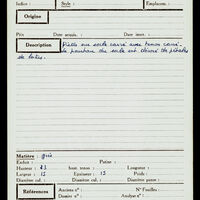 Indice : Style : Emplacem. :
Origine
Prix Date acquis. : Date insert. :
Description
socle carré avec tenon carré.
le pourtour du socle est décoré de pétales
de lotus.
Matière : gris
Enduit : Patine :
Hauteur : haut. tenon : Longueur :
Largeur : 15 Epaisseur : 15 Poids :
Diamètre cul. : Diamètre panse :
Références
Ancien n° : N° Fouilles :
Dommien n° : Analyse n° :